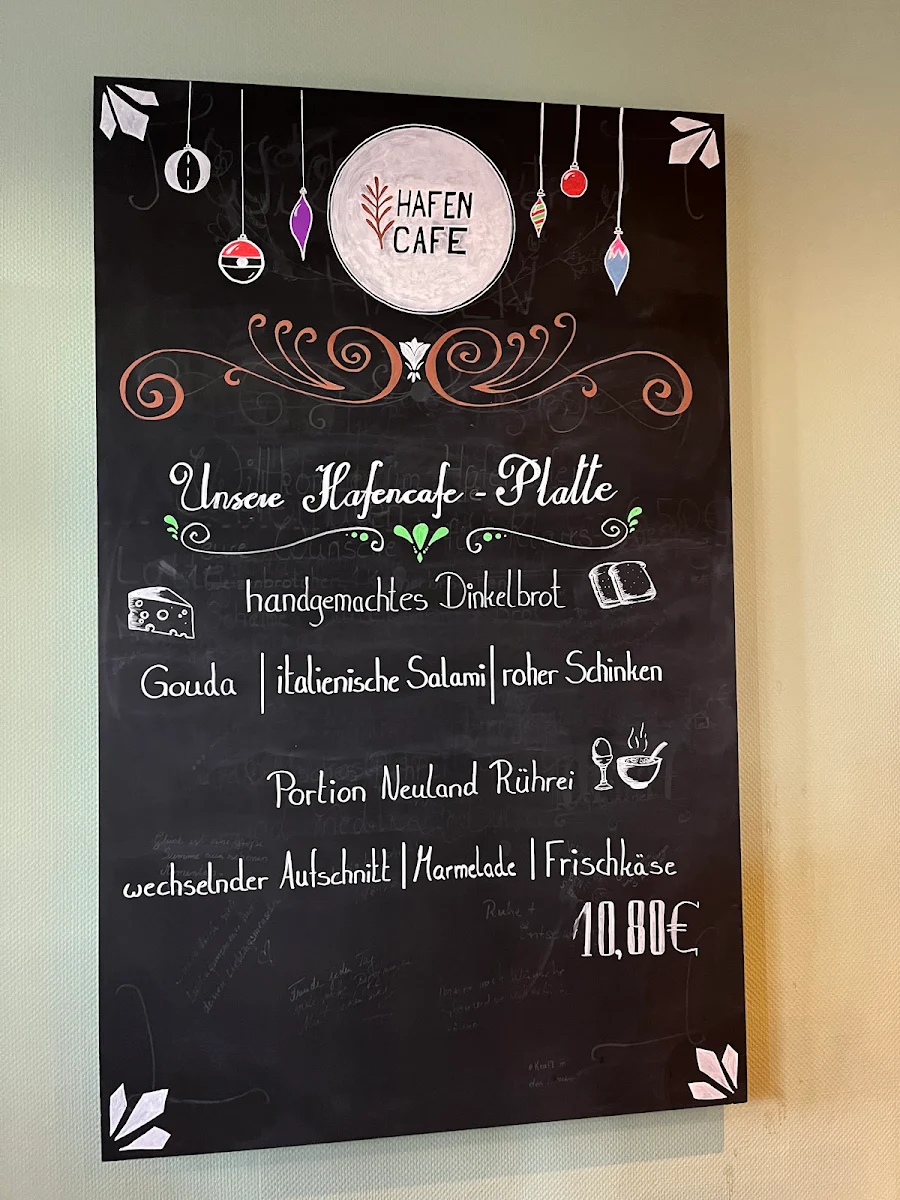 HAFEN
CAFE
Unsere Hafencafe - Platte
handgemachtes Dinkelbrot
Gouda | italienische Salami | roher Schinken
Portion Neuland Rührei
wechselnder Aufschnitt | Marmelade | Frischkäse
10,80€
Ruhe +